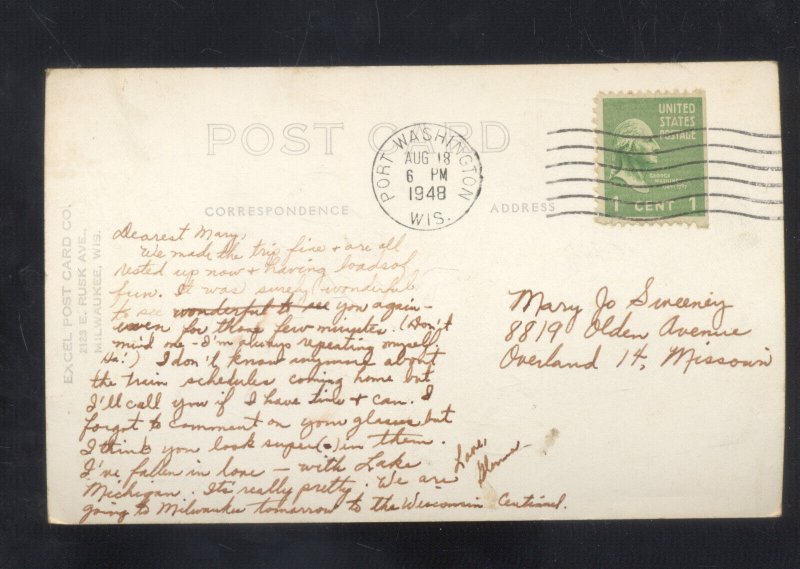 POST CARD
CORRESPONDENCE
ADDRESS
PORT WASHINGTON
AUG 18
6 PM
1948
WIS.
UNITED
STATES
POSTAGE
GEORGE
WASHINGTON
1 CENT 1
EXCEL POST CARD CO.
2123 E. RUSK AVE.,
MILWAUKEE, WIS.
Dearest Mary,
We made the trip fine + are all
rested up now + having loads of
fun. It was surely wonderful
to see wonderful to see you again -
even for those few minutes. (Don't
mind me - I'm always repeating myself,
Ha!) I don't know anymore about
the train schedules coming home but
I'll call you if I have time + can. I
forgot to comment on your glasses but
I think you look super(.) in them.
I've fallen in love - with Lake
Michigan. It's really pretty. We are
going to Milwaukee tomorrow to the Wisconsin Centinel.
Love,
Mary Jo Sweeney
8819 Olden Avenue
Overland 14, Missouri